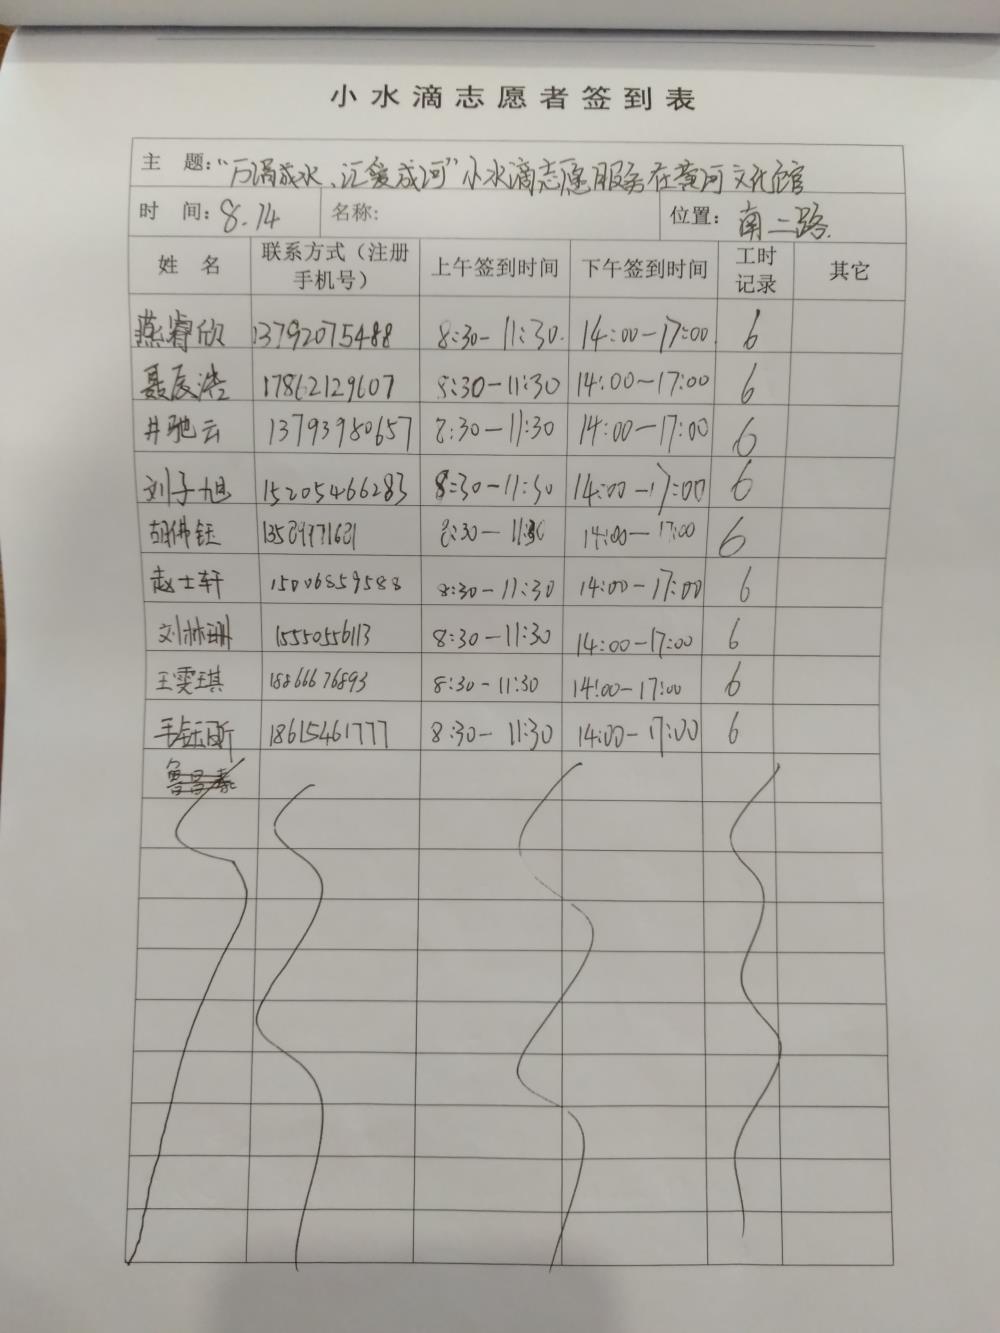 小水滴志愿者签到表
主 题："万滴成水、汇爱成河"小水滴志愿服务在黄河文化馆
时 间：8.14 名称: 位置：南二路.
姓 名 联系方式（注册手机号） 上午签到时间 下午签到时间 工时记录 其它
燕睿欣 13792075488 8:30-11:30. 14:00-17:00. 6
聂辰浩 17862129607 8:30-11:30 14:00-17:00 6
井驰云 13793980657 8:30-11:30 14:00-17:00 6
刘子旭 15205466283 8:30-11:30 14:00-17:00 6
胡佛钰 8:30-11:30 14:00-17:00 6
赵士轩 15006859588 8:30-11:30 14:00-17:00 6
刘林珊 15550556113 8:30-11:30 14:00-17:00 6
王雯琪 18866676893 8:30-11:30 14:00-17:00 6
18615461777 8:30-11:30 14:00-17:00 6